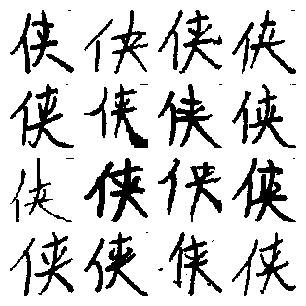 侠侠侠侠
侠侠侠侠
侠侠侠侠
侠侠侠侠